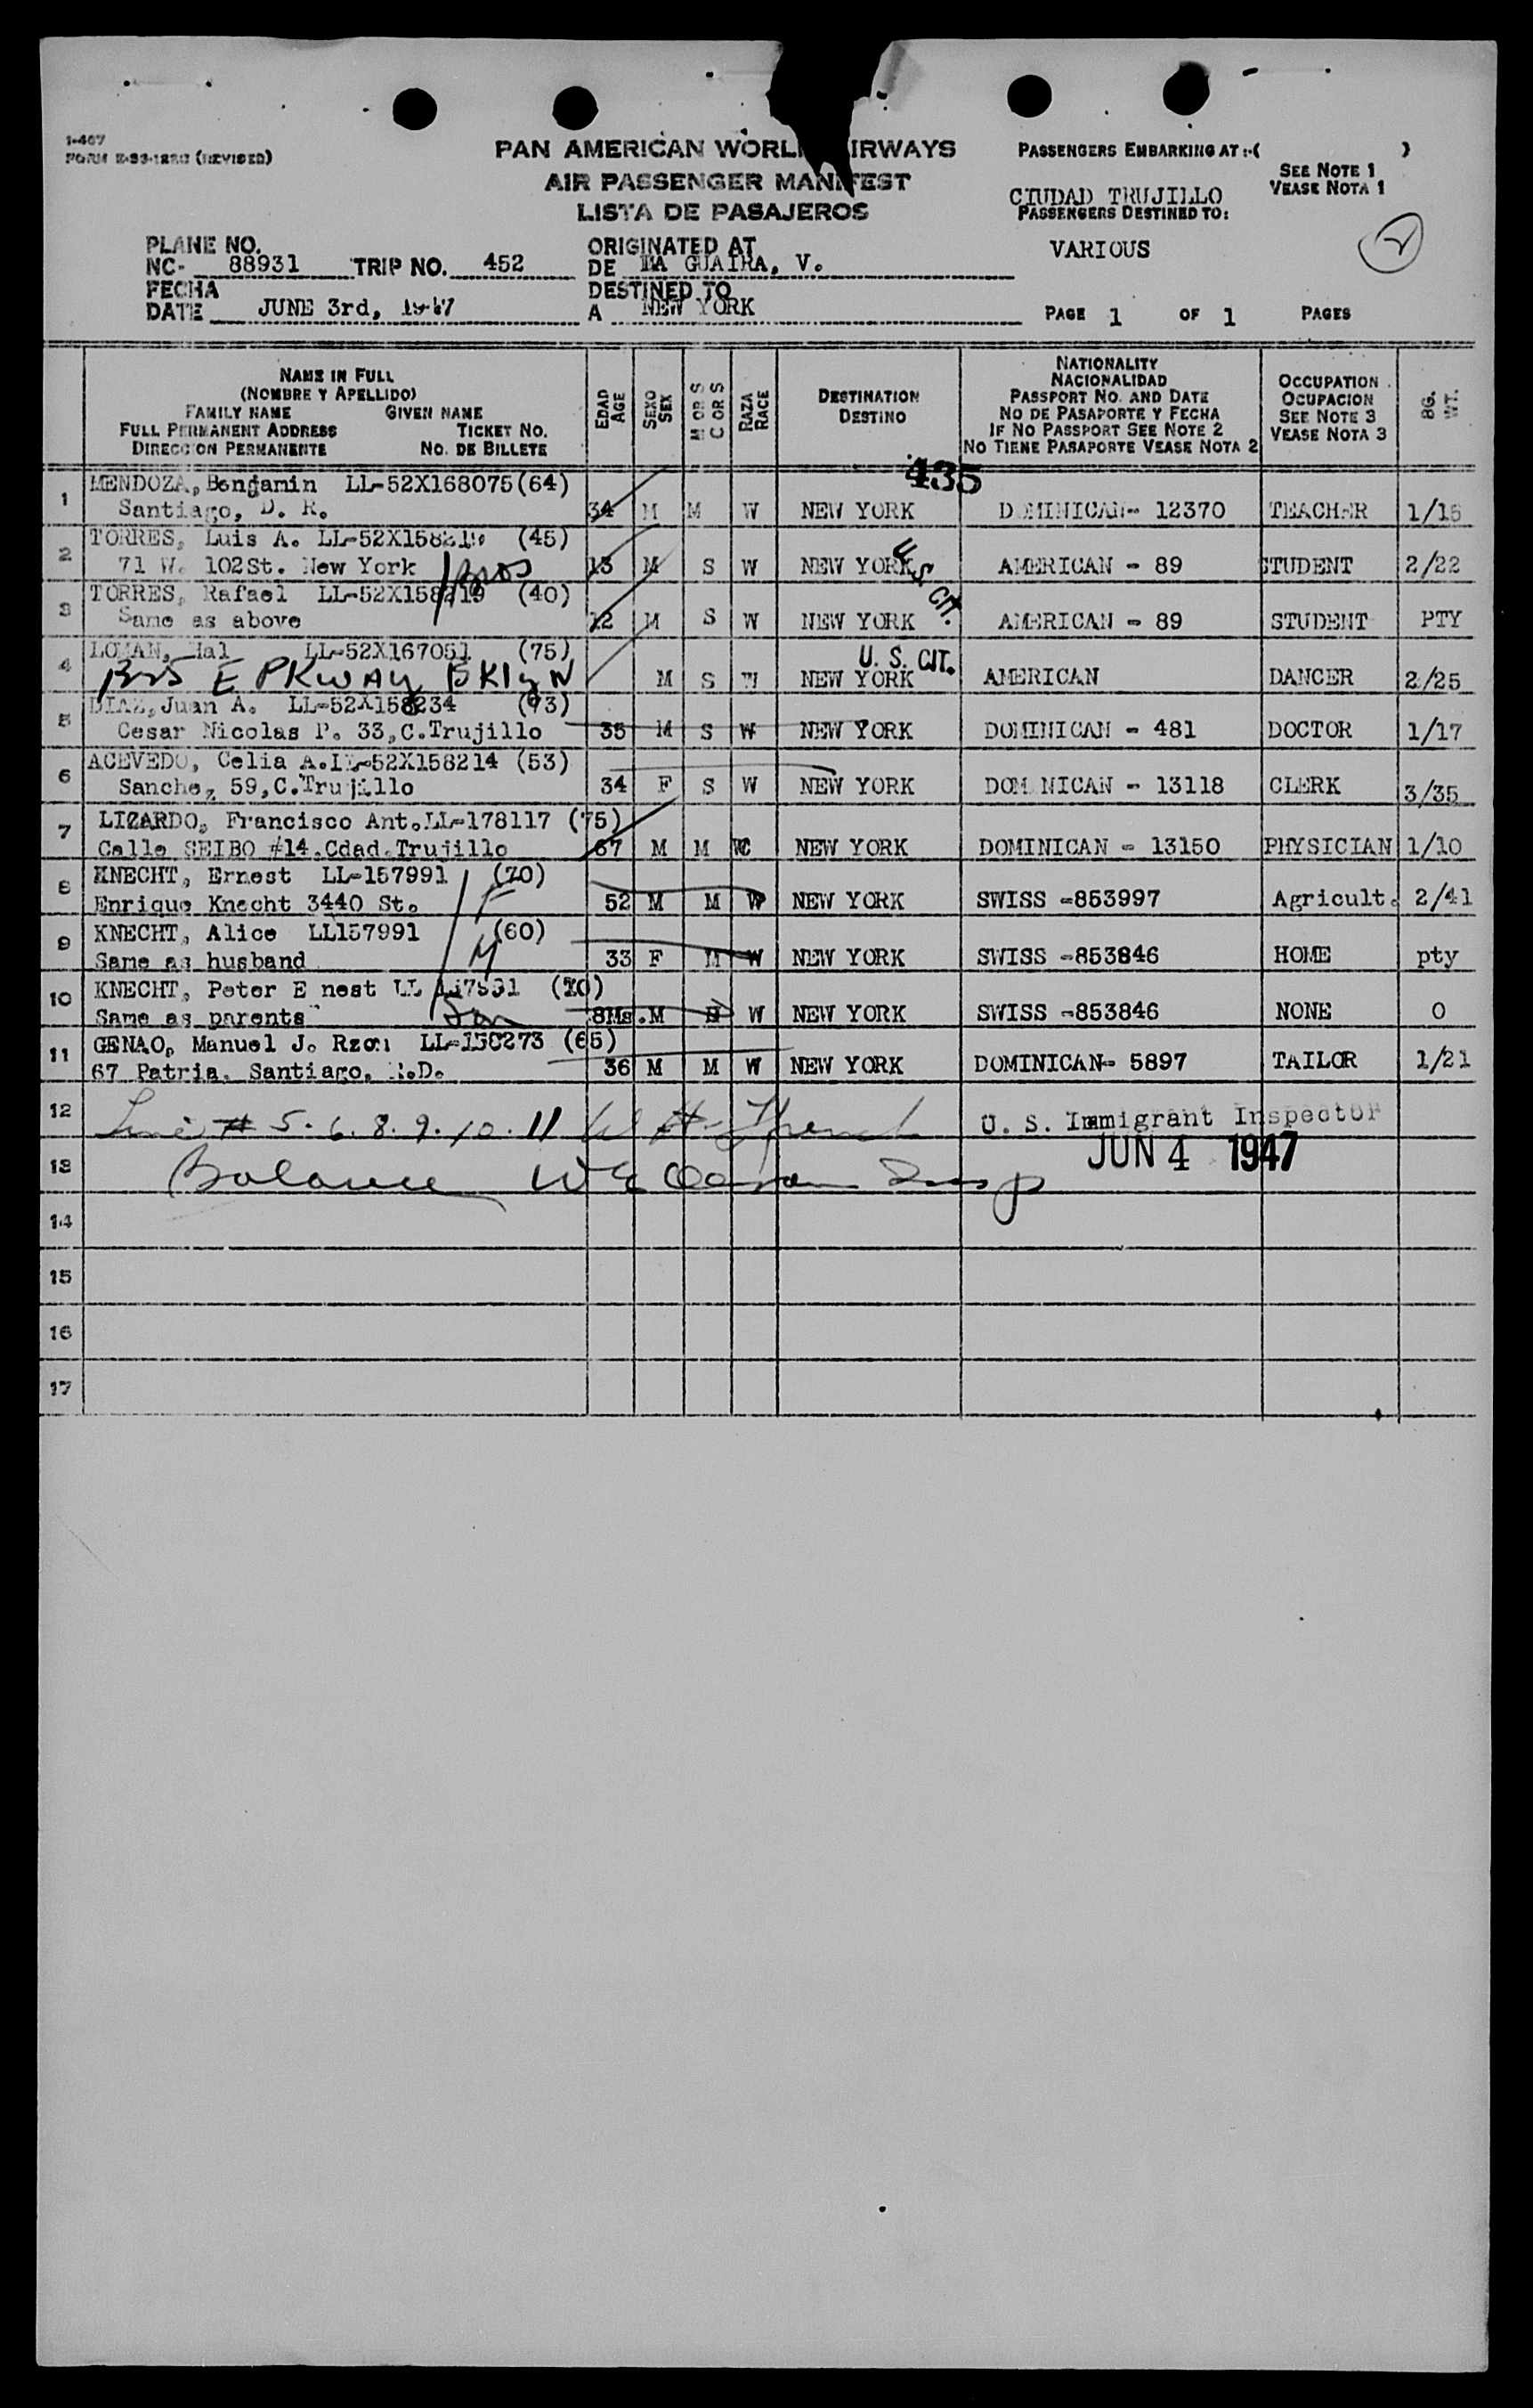 1-467
FORM E-33-1220 (REVISED)
PAN AMERICAN WORL IRWAYS
AIR PASSENGER MANIFEST
LISTA DE PASAJEROS
PASSENGERS EMBARKING AT :-( )
SEE NOTE 1
VEASE NOTA 1
CIUDAD TRUJILLO
PASSENGERS DESTINED TO:
VARIOUS
2
PLANE NO.
NC- 88931 TRIP NO. 452
ORIGINATED AT
DE LA GUAIRA, V.
FECHA
DATE JUNE 3rd, 1947
DESTINED TO
A NEW YORK
PAGE 1 OF 1 PAGES
NAME IN FULL
(NOMBRE Y APELLIDO)
FAMILY NAME GIVEN NAME
FULL PERMANENT ADDRESS TICKET NO.
DIRECCION PERMANENTE NO. DE BILLETE
EDAD
AGE
SEXO
SEX
M OR S
C OR S
RAZA
RACE
DESTINATION
DESTINO
NATIONALITY
NACIONALIDAD
PASSPORT NO. AND DATE
NO DE PASAPORTE Y FECHA
IF NO PASSPORT SEE NOTE 2
NO TIENE PASAPORTE VEASE NOTA 2
OCCUPATION
OCUPACION
SEE NOTE 3
VEASE NOTA 3
BG.
WT.
435
MENDOZA, Bengamin LL-52X168075(64)
1 Santiago, D. R. 34 M M W NEW YORK DOMINICAN- 12370 TEACHER 1/15
TORRES, Luis A. LL-52X158219 (45)
2 71 W. 102St. New York Bros 13 M S W NEW YORK U.S. CIT. AMERICAN - 89 STUDENT 2/22
TORRES, Rafael LL-52X158219 (40)
3 Same as above 12 M S W NEW YORK AMERICAN - 89 STUDENT PTY
LOMAN, Hal LL-52X167051 (75) U. S. CIT.
4 E PKWAY BKlyN M S W NEW YORK AMERICAN DANCER 2/25
DIAZ, Juan A. LL-52X158234 (93)
5 Cesar Nicolas P. 33,C.Trujillo 35 M S W NEW YORK DOMINICAN - 481 DOCTOR 1/17
ACEVEDO, Celia A.LL-52X158214 (53)
6 Sanchez 59,C.Trujillo 34 F S W NEW YORK DOM NICAN - 13118 CLERK 3/35
LIZARDO, Francisco Ant.LL-178117 (75)
7 Calle SEIBO #14.Cdad.Trujillo 67 M M W NEW YORK DOMINICAN - 13150 PHYSICIAN 1/10
KNECHT, Ernest LL-157991 (70)
8 Enrique Knecht 3440 St. F 52 M M W NEW YORK SWISS -853997 Agricult. 2/41
KNECHT, Alice LL157991 (60)
9 Same as husband M 33 F M W NEW YORK SWISS -853846 HOME pty
KNECHT, Peter E nest LL 157991 (20)
10 Same as parents Son 8Ms.M S W NEW YORK SWISS -853846 NONE 0
GENAO, Manuel J. Rzon LL-158273 (65)
11 67 Patria, Santiago, R.D. 36 M M W NEW YORK DOMINICAN- 5897 TAILOR 1/21
12 Line # 5. 6. 8. 9. 10. 11 W H French U. S. Immigrant Inspector
JUN 4 1947
13 Balance W E Insp
14
15
16
17